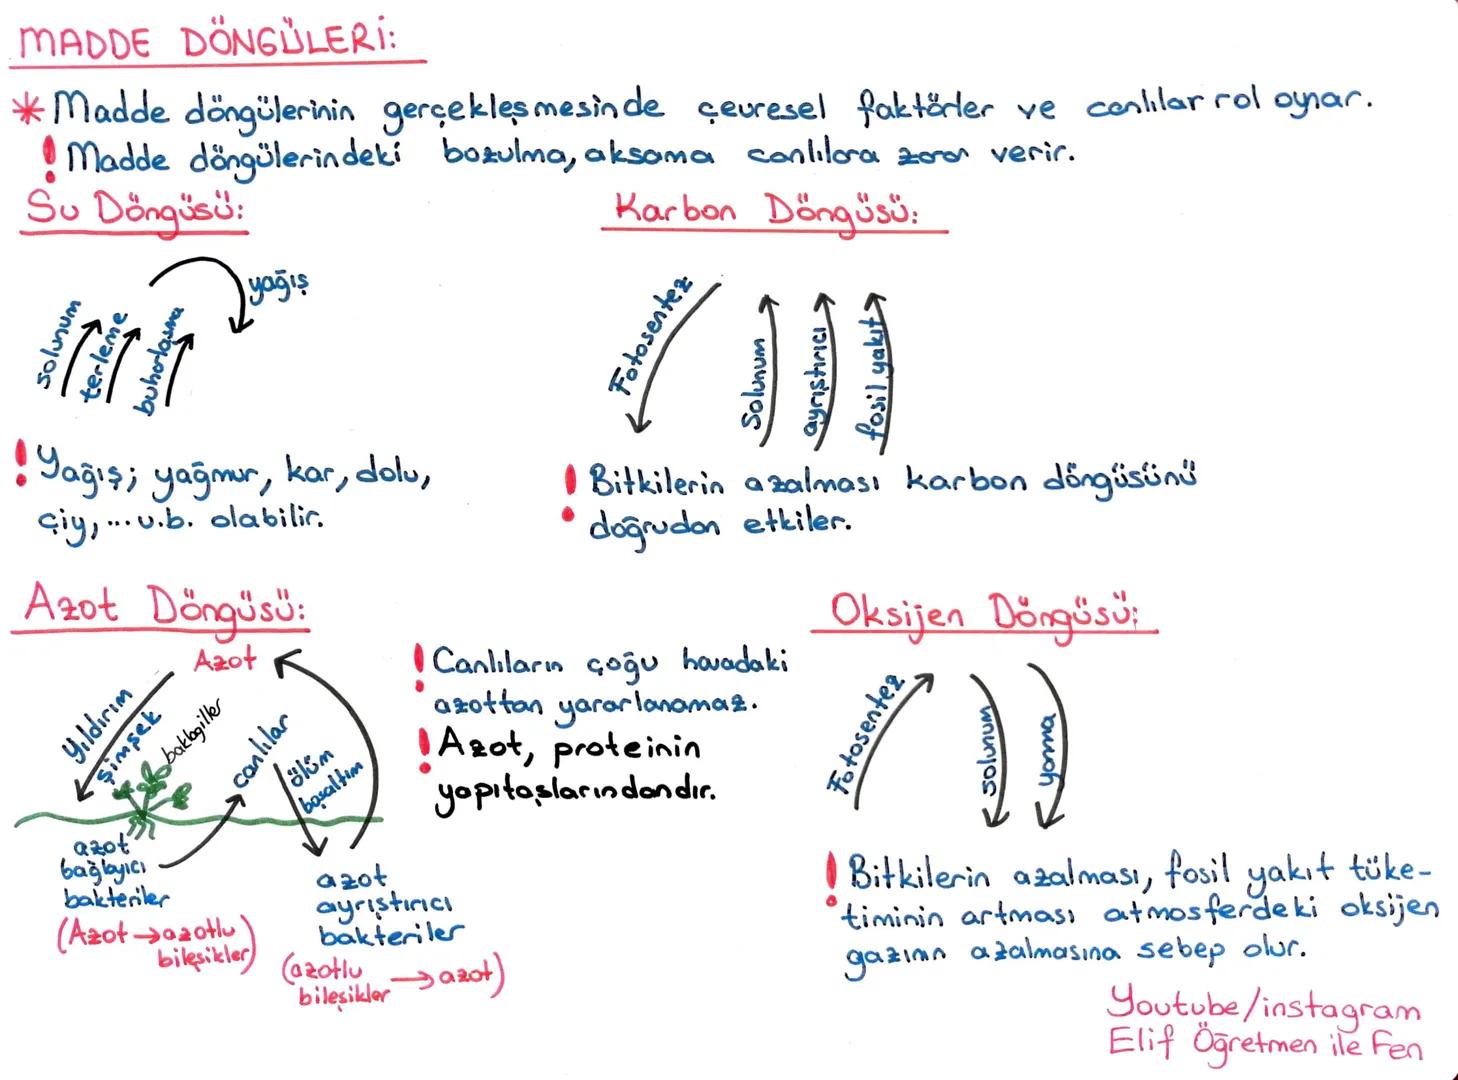 MADDE DÖNGÜLERİ:
* Madde döngülerinin gerçekleşmesinde çevresel faktörler ve canlılar rol oynar.
! Madde döngülerindeki bozulma, aksama canlılara zarar verir.
Su Döngüsü:
solunum
terleme
buharlaşma
yağış
! Yağış; yağmur, kar, dolu,
çiy, ... v.b. olabilir.
Karbon Döngüsü:
Fotosentez
Solunum
ayrıştırıcı
fosil yakıt
! Bitkilerin azalması karbon döngüsünü
doğrudan etkiler.
Azot Döngüsü:
Azot
Yıldırım
şimşek
baklagiller
canlılar
ölüm
boşaltım
azot
bağlayıcı
bakteriler
(Azot → azotlu
bileşikler)
azot
ayrıştırıcı
bakteriler
(azotlu → azot)
bileşikler
! Canlıların çoğu havadaki
azottan yararlanamaz.
! Azot, proteinin
yapıtaşlarındandır.
Oksijen Döngüsü:
Fotosentez
solunum
yanma
! Bitkilerin azalması, fosil yakıt tüke-
timinin artması atmosferdeki oksijen
gazının azalmasına sebep olur.
Youtube/instagram
Elif Öğretmen ile Fen